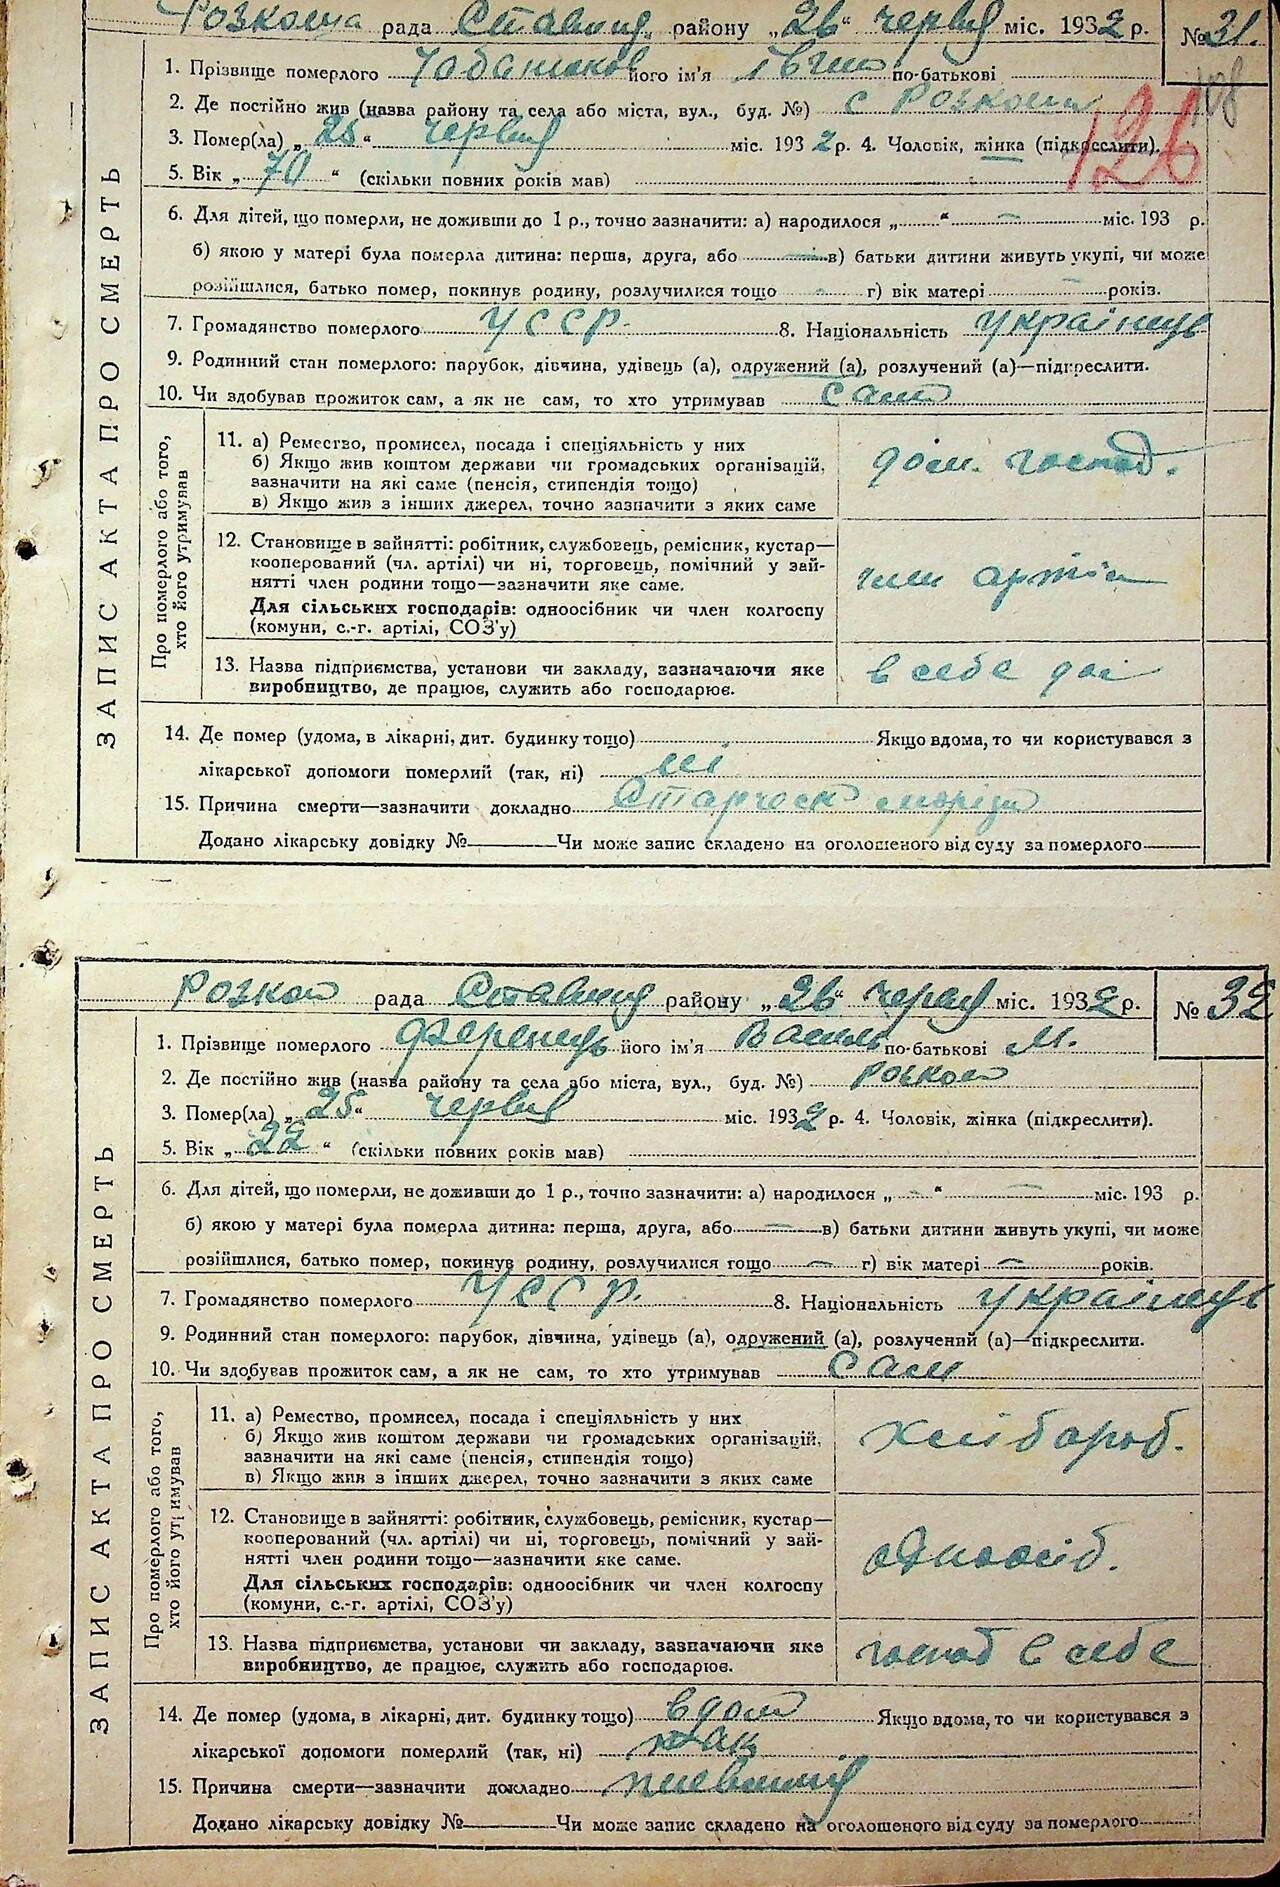 Розкоша рада Ставищ. району „26“ червня міс. 1932 р. № 31.
108
1. Прізвище померлого його ім'я по-батькові
126
2. Де постійно жив (назва району та села або міста, вул., буд. №) с Розкоша
3. Помер(ла) „25“ червня міс. 1932 р. 4. Чоловік, жінка (підкреслити).
5. Вік „70“ (скільки повних років мав)
6. Для дітей, що померли, не доживши до 1 р., точно зазначити: а) народилося „ “ — міс. 193 р.
б) якою у матері була померла дитина: перша, друга, або — в) батьки дитини живуть укупі, чи може
розійшлися, батько помер, покинув родину, розлучилися тощо - г) вік матері — років.
7. Громадянство померлого УССР. 8. Національність українець
9. Родинний стан померлого: парубок, дівчина, удівець (а), одружений (а), розлучений (а)—підкреслити.
10. Чи здобував прожиток сам, а як не сам, то хто утримував сам
ЗАПИС АКТА ПРО СМЕРТЬ
Про померлого або того,
хто його утримував
11. а) Ремество, промисел, посада і спеціяльність у них
б) Якщо жив коштом держави чи громадських організацій,
зазначити на які саме (пенсія, стипендія тощо)
в) Якщо жив з інших джерел, точно зазначити з яких саме
дом. господ.
12. Становище в зайнятті: робітник, службовець, ремісник, кустар—
кооперований (чл. артілі) чи ні, торговець, помічний у зай-
нятті член родини тощо—зазначити яке саме.
Для сільських господарів: одноосібник чи член колгоспу
(комуни, с.-г. артілі, СОЗ'у)
член артіл
13. Назва підприємства, установи чи закладу, зазначаючи яке
виробництво, де працює, служить або господарює.
в себе
14. Де помер (удома, в лікарні, дит. будинку тощо) Якщо вдома, то чи користувався з
лікарської допомоги померлий (так, ні) ні
15. Причина смерти—зазначити докладно
Додано лікарську довідку № Чи може запис складено на оголошеного від суду за померлого
Розкош рада Ставищ району „26“ червня міс. 1932 р. № 32
1. Прізвище померлого Ференець його ім'я Василь по-батькові М.
2. Де постійно жив (назва району та села або міста, вул., буд. №) Розкош
3. Помер(ла) „25“ червня міс. 1932 р. 4. Чоловік, жінка (підкреслити).
5. Вік „22“ (скільки повних років мав)
6. Для дітей, що померли, не доживши до 1 р., точно зазначити: а) народилося „ — “ — міс. 193 р.
б) якою у матері була померла дитина: перша, друга, або — в) батьки дитини живуть укупі, чи може
розійшлися, батько помер, покинув родину, розлучилися тощо — г) вік матері — років.
7. Громадянство померлого УССР. 8. Національність українець
9. Родинний стан померлого: парубок, дівчина, удівець (а), одружений (а), розлучений (а)—підкреслити.
10. Чи здобував прожиток сам, а як не сам, то хто утримував сам
ЗАПИС АКТА ПРО СМЕРТЬ
Про померлого або того,
хто його утримував
11. а) Ремество, промисел, посада і спеціяльність у них
б) Якщо жив коштом держави чи громадських організацій,
зазначити на які саме (пенсія, стипендія тощо)
в) Якщо жив з інших джерел, точно зазначити з яких саме
хлібороб.
12. Становище в зайнятті: робітник, службовець, ремісник, кустар—
кооперований (чл. артілі) чи ні, торговець, помічний у зай-
нятті член родини тощо—зазначити яке саме.
Для сільських господарів: одноосібник чи член колгоспу
(комуни, с.-г. артілі, СОЗ'у)
одноосіб.
13. Назва підприємства, установи чи закладу, зазначаючи яке
виробництво, де працює, служить або господарює.
господ в себе
14. Де помер (удома, в лікарні, дит. будинку тощо) вдома Якщо вдома, то чи користувався з
лікарської допомоги померлий (так, ні) так
15. Причина смерти—зазначити докладно
Додано лікарську довідку № Чи може запис складено на оголошеного від суду за померлого